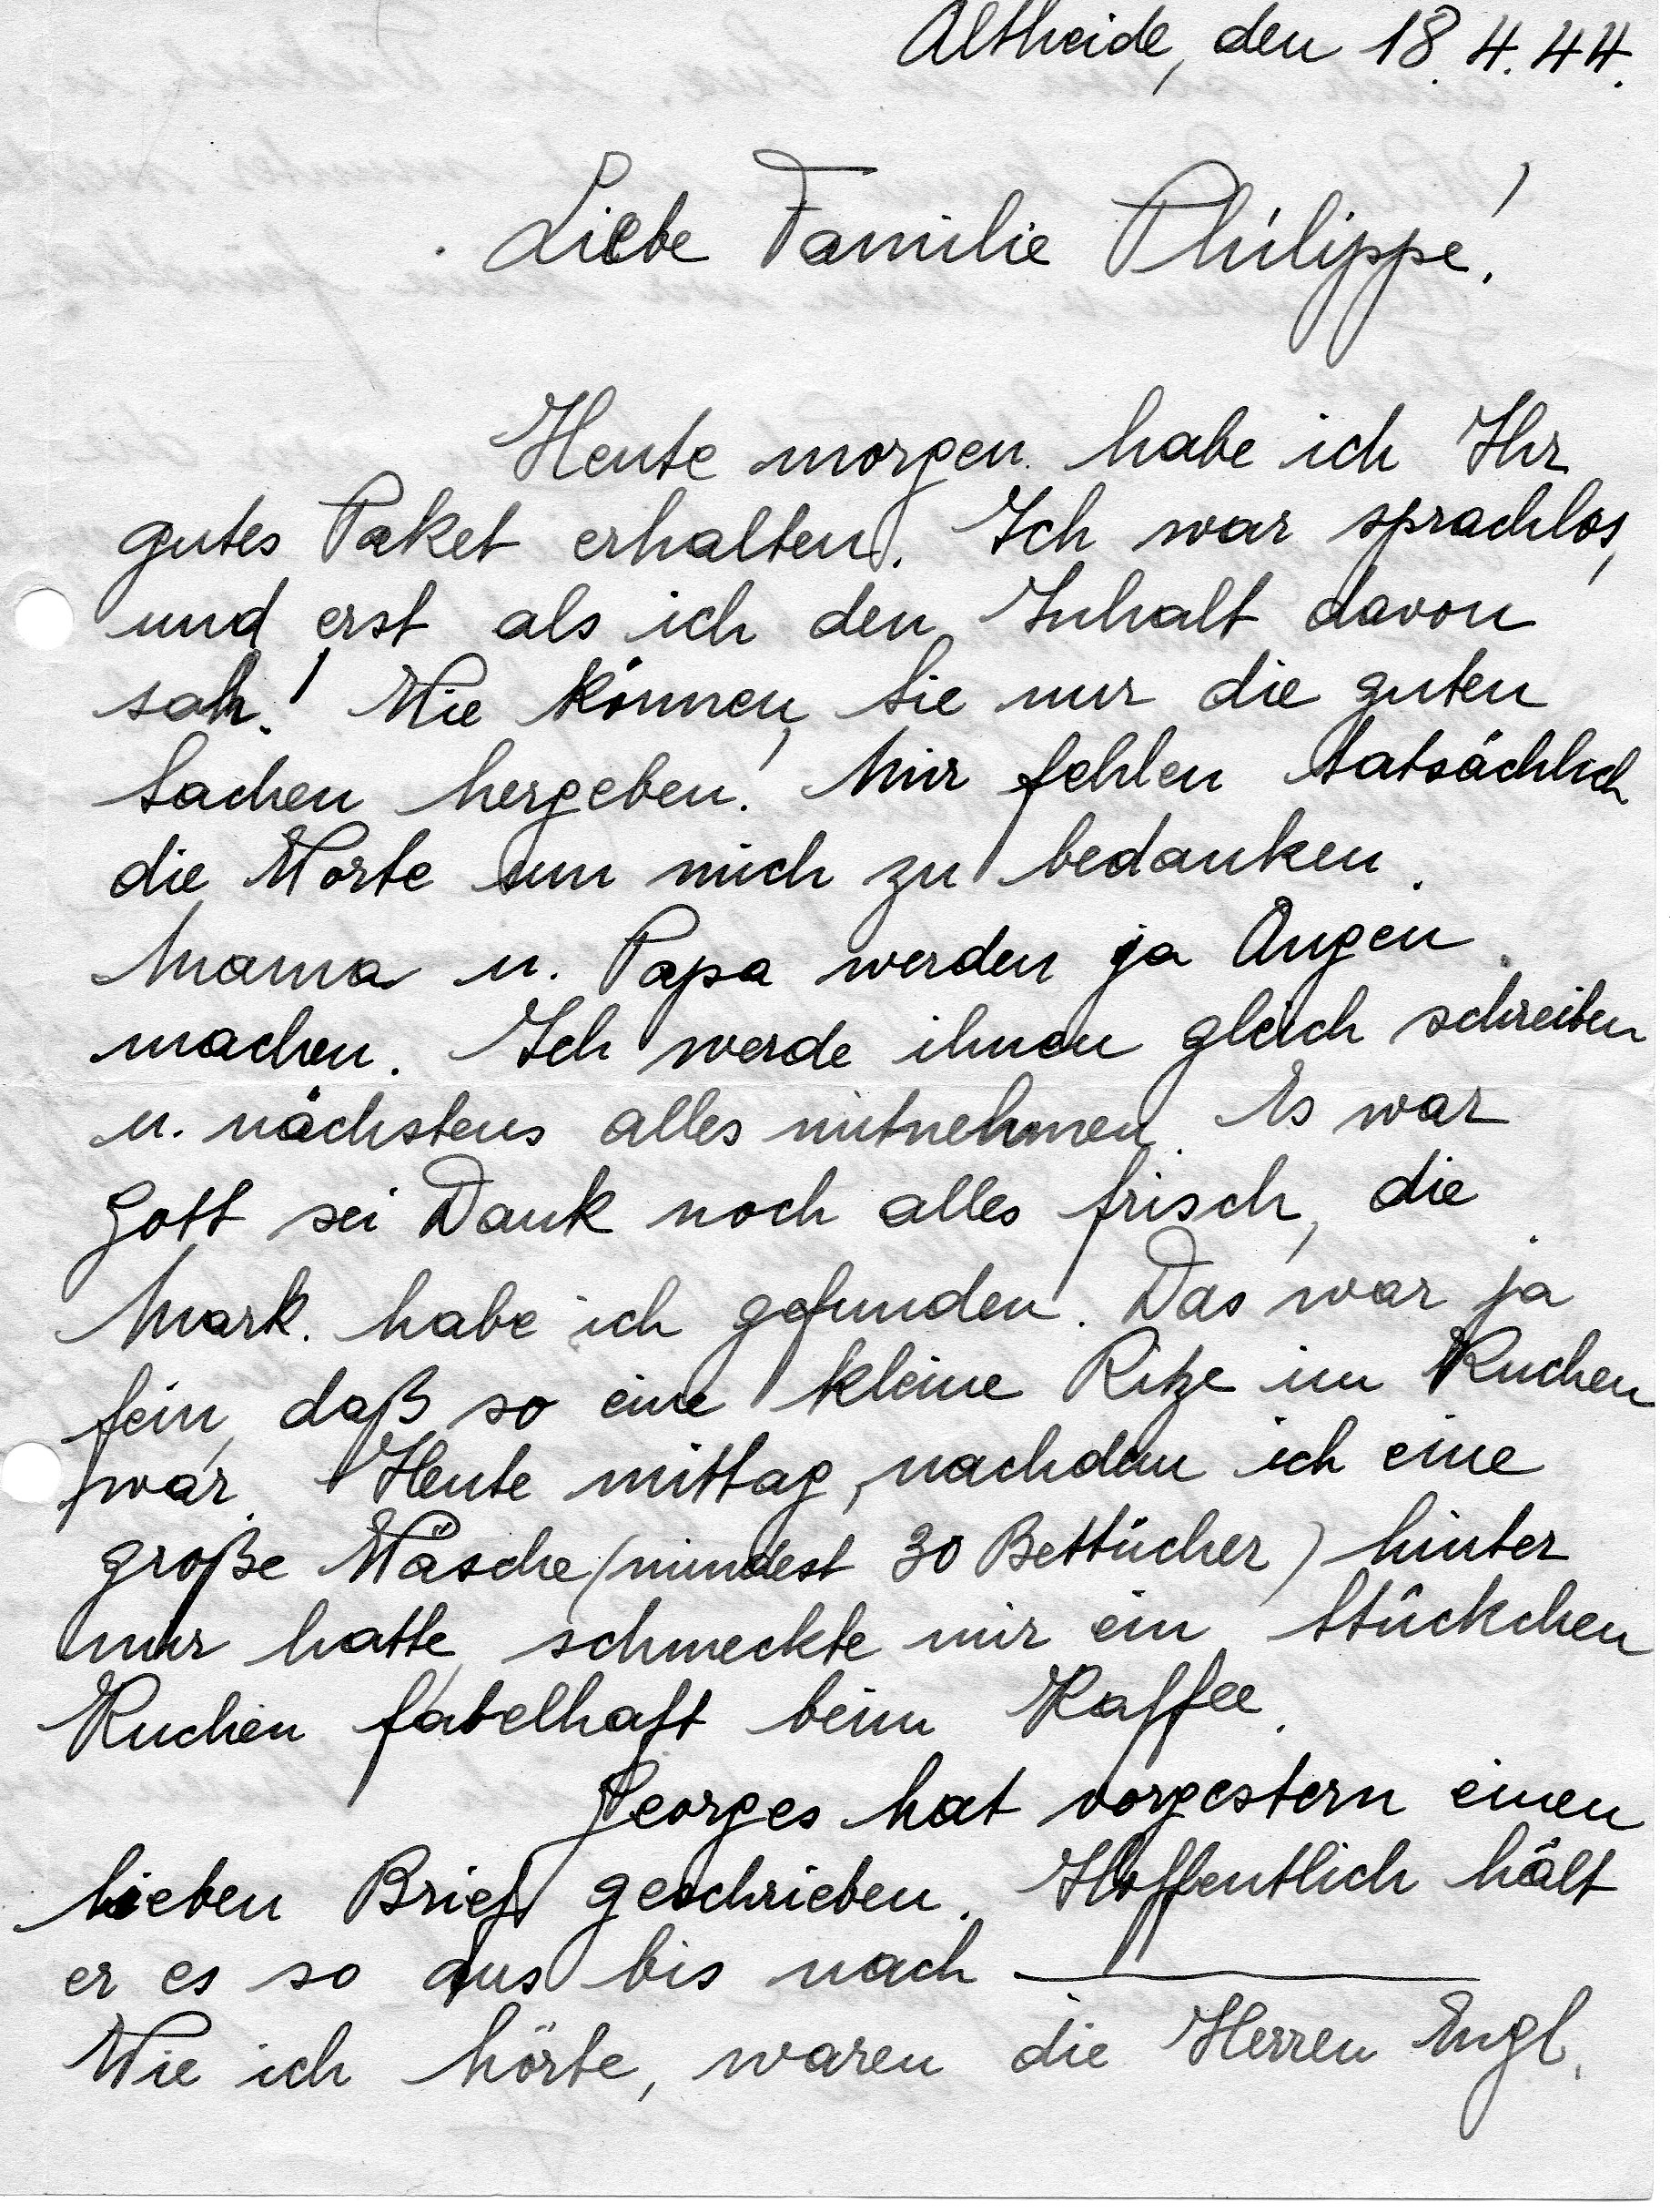 Altheide, den 18.4.44.
Liebe Familie Philippe!
Heute morgen habe ich Ihr
gutes Paket erhalten. Ich war sprachlos,
und erst als ich den Inhalt davon
sah! Wie können Sie nur die guten
Sachen hergeben! Mir fehlen tatsächlich
die Worte um mich zu bedanken.
Mama u. Papa werden ja Augen
machen. Ich werde ihnen gleich schreiben
u. nächstens alles mitnehmen. Es war
Gott sei Dank noch alles frisch, die
Mark. habe ich gefunden. Das war ja
fein, daß so eine kleine Ritze im Kuchen
war. Heute mittag, nachdem ich eine
große Wäsche (mindest 30 Bettücher) hinter
mir hatte, schmeckte mir ein Stückchen
Kuchen fabelhaft beim Kaffee.
Georges hat vorgestern einen
lieben Brief geschrieben. Hoffentlich hält
er es so aus bis nach ———
Wie ich hörte, waren die Herren Engl.